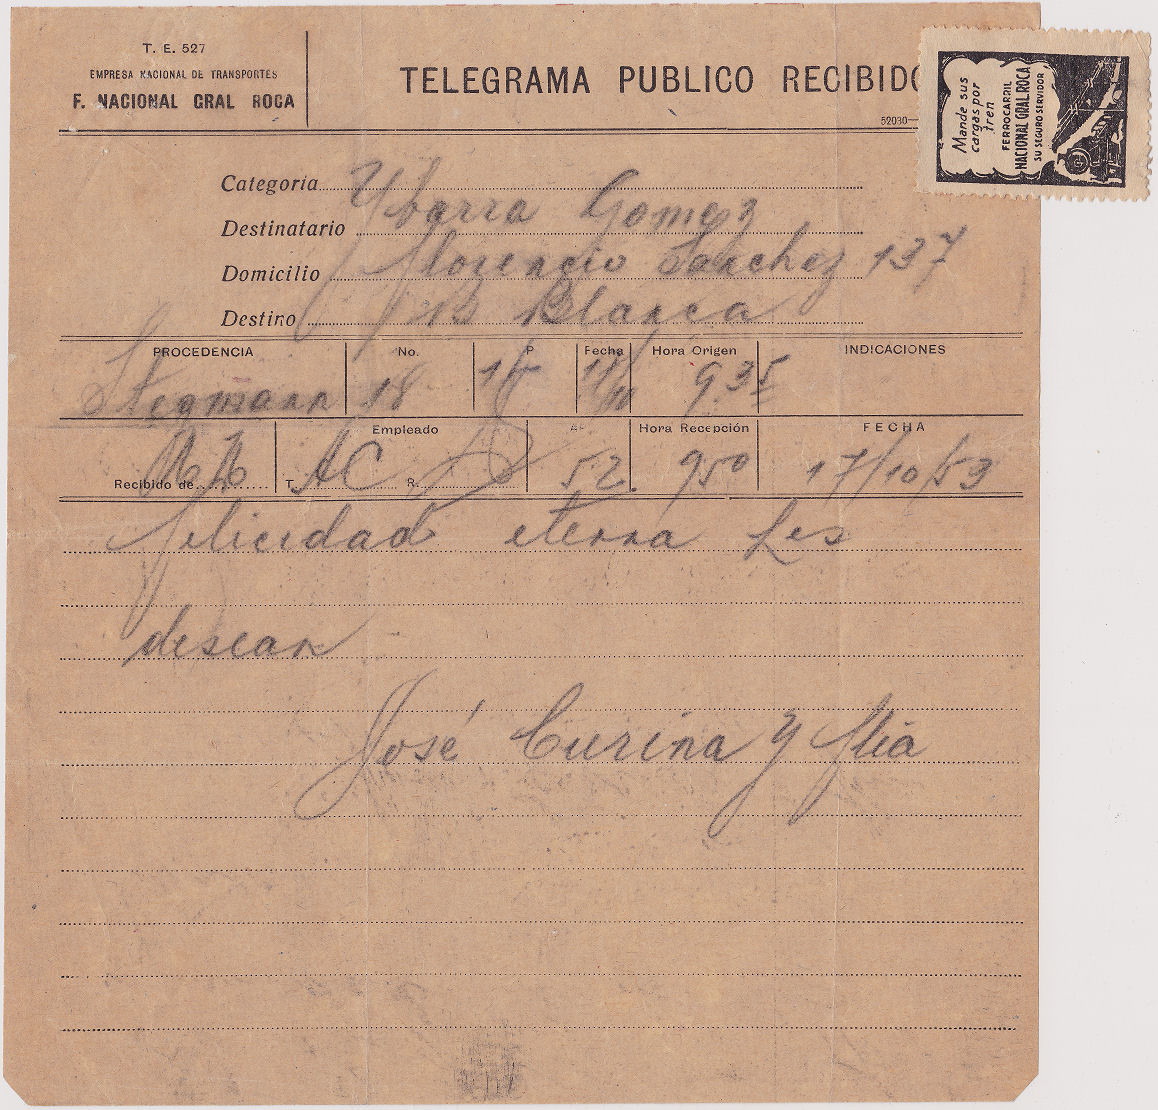 T. E. 527
EMPRESA NACIONAL DE TRANSPORTES
F. NACIONAL GRAL ROCA
TELEGRAMA PUBLICO RECIBIDO
52030—
Mande sus
cargas por
tren
FERROCARRIL
NACIONAL GRAL ROCA
SU SEGURO SERVIDOR
Categoria
Destinatario Ybarra Gomez
Domicilio Florencio Sanchez 137
Destino Blanca
PROCEDENCIA No. P Fecha Hora Origen INDICACIONES
Stegmann 18 17/10 9.35
Empleado Hora Recepción FECHA
Recibido de T. AC R. 52 950 17/10/53
felicidad eterna Les
desean
José Curina y flia